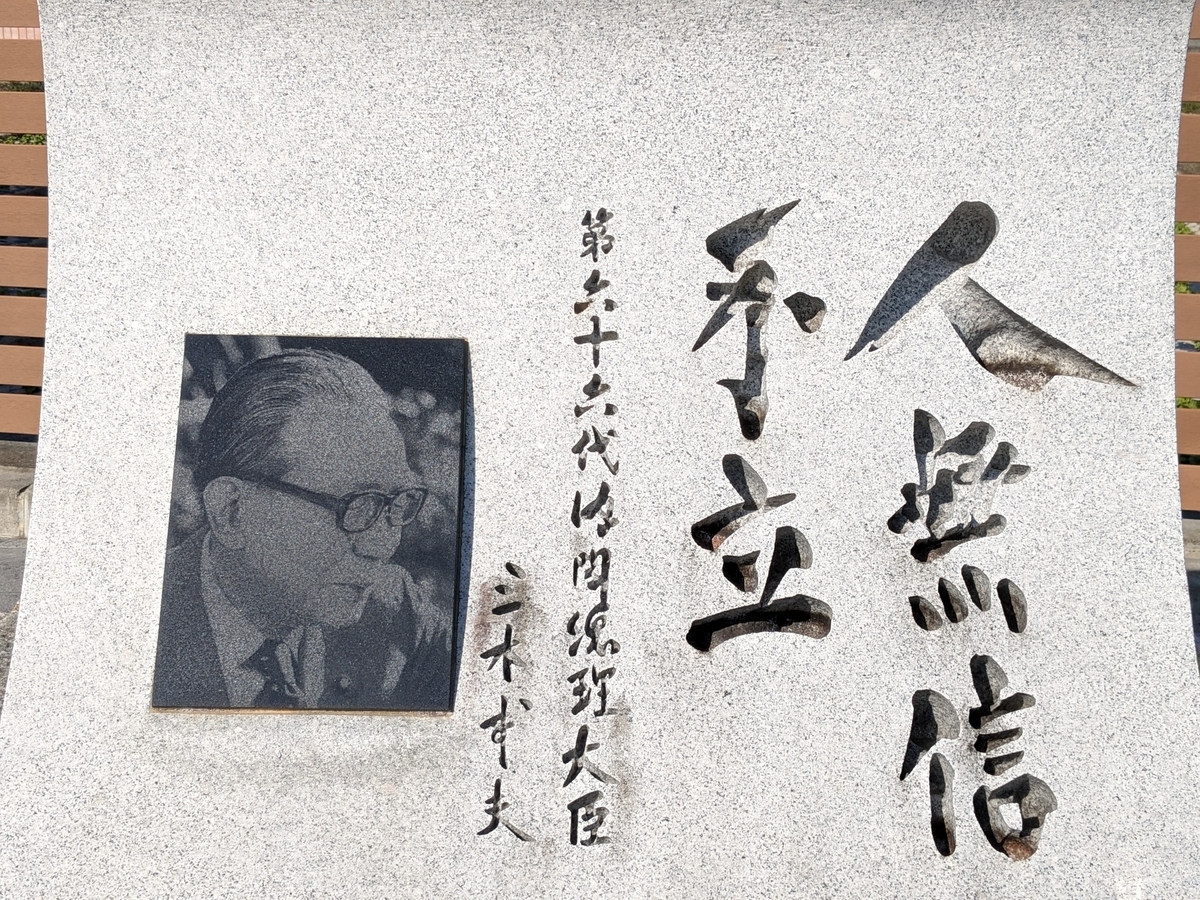 人無信
不立
第六十六代内閣總理大臣
三木武夫